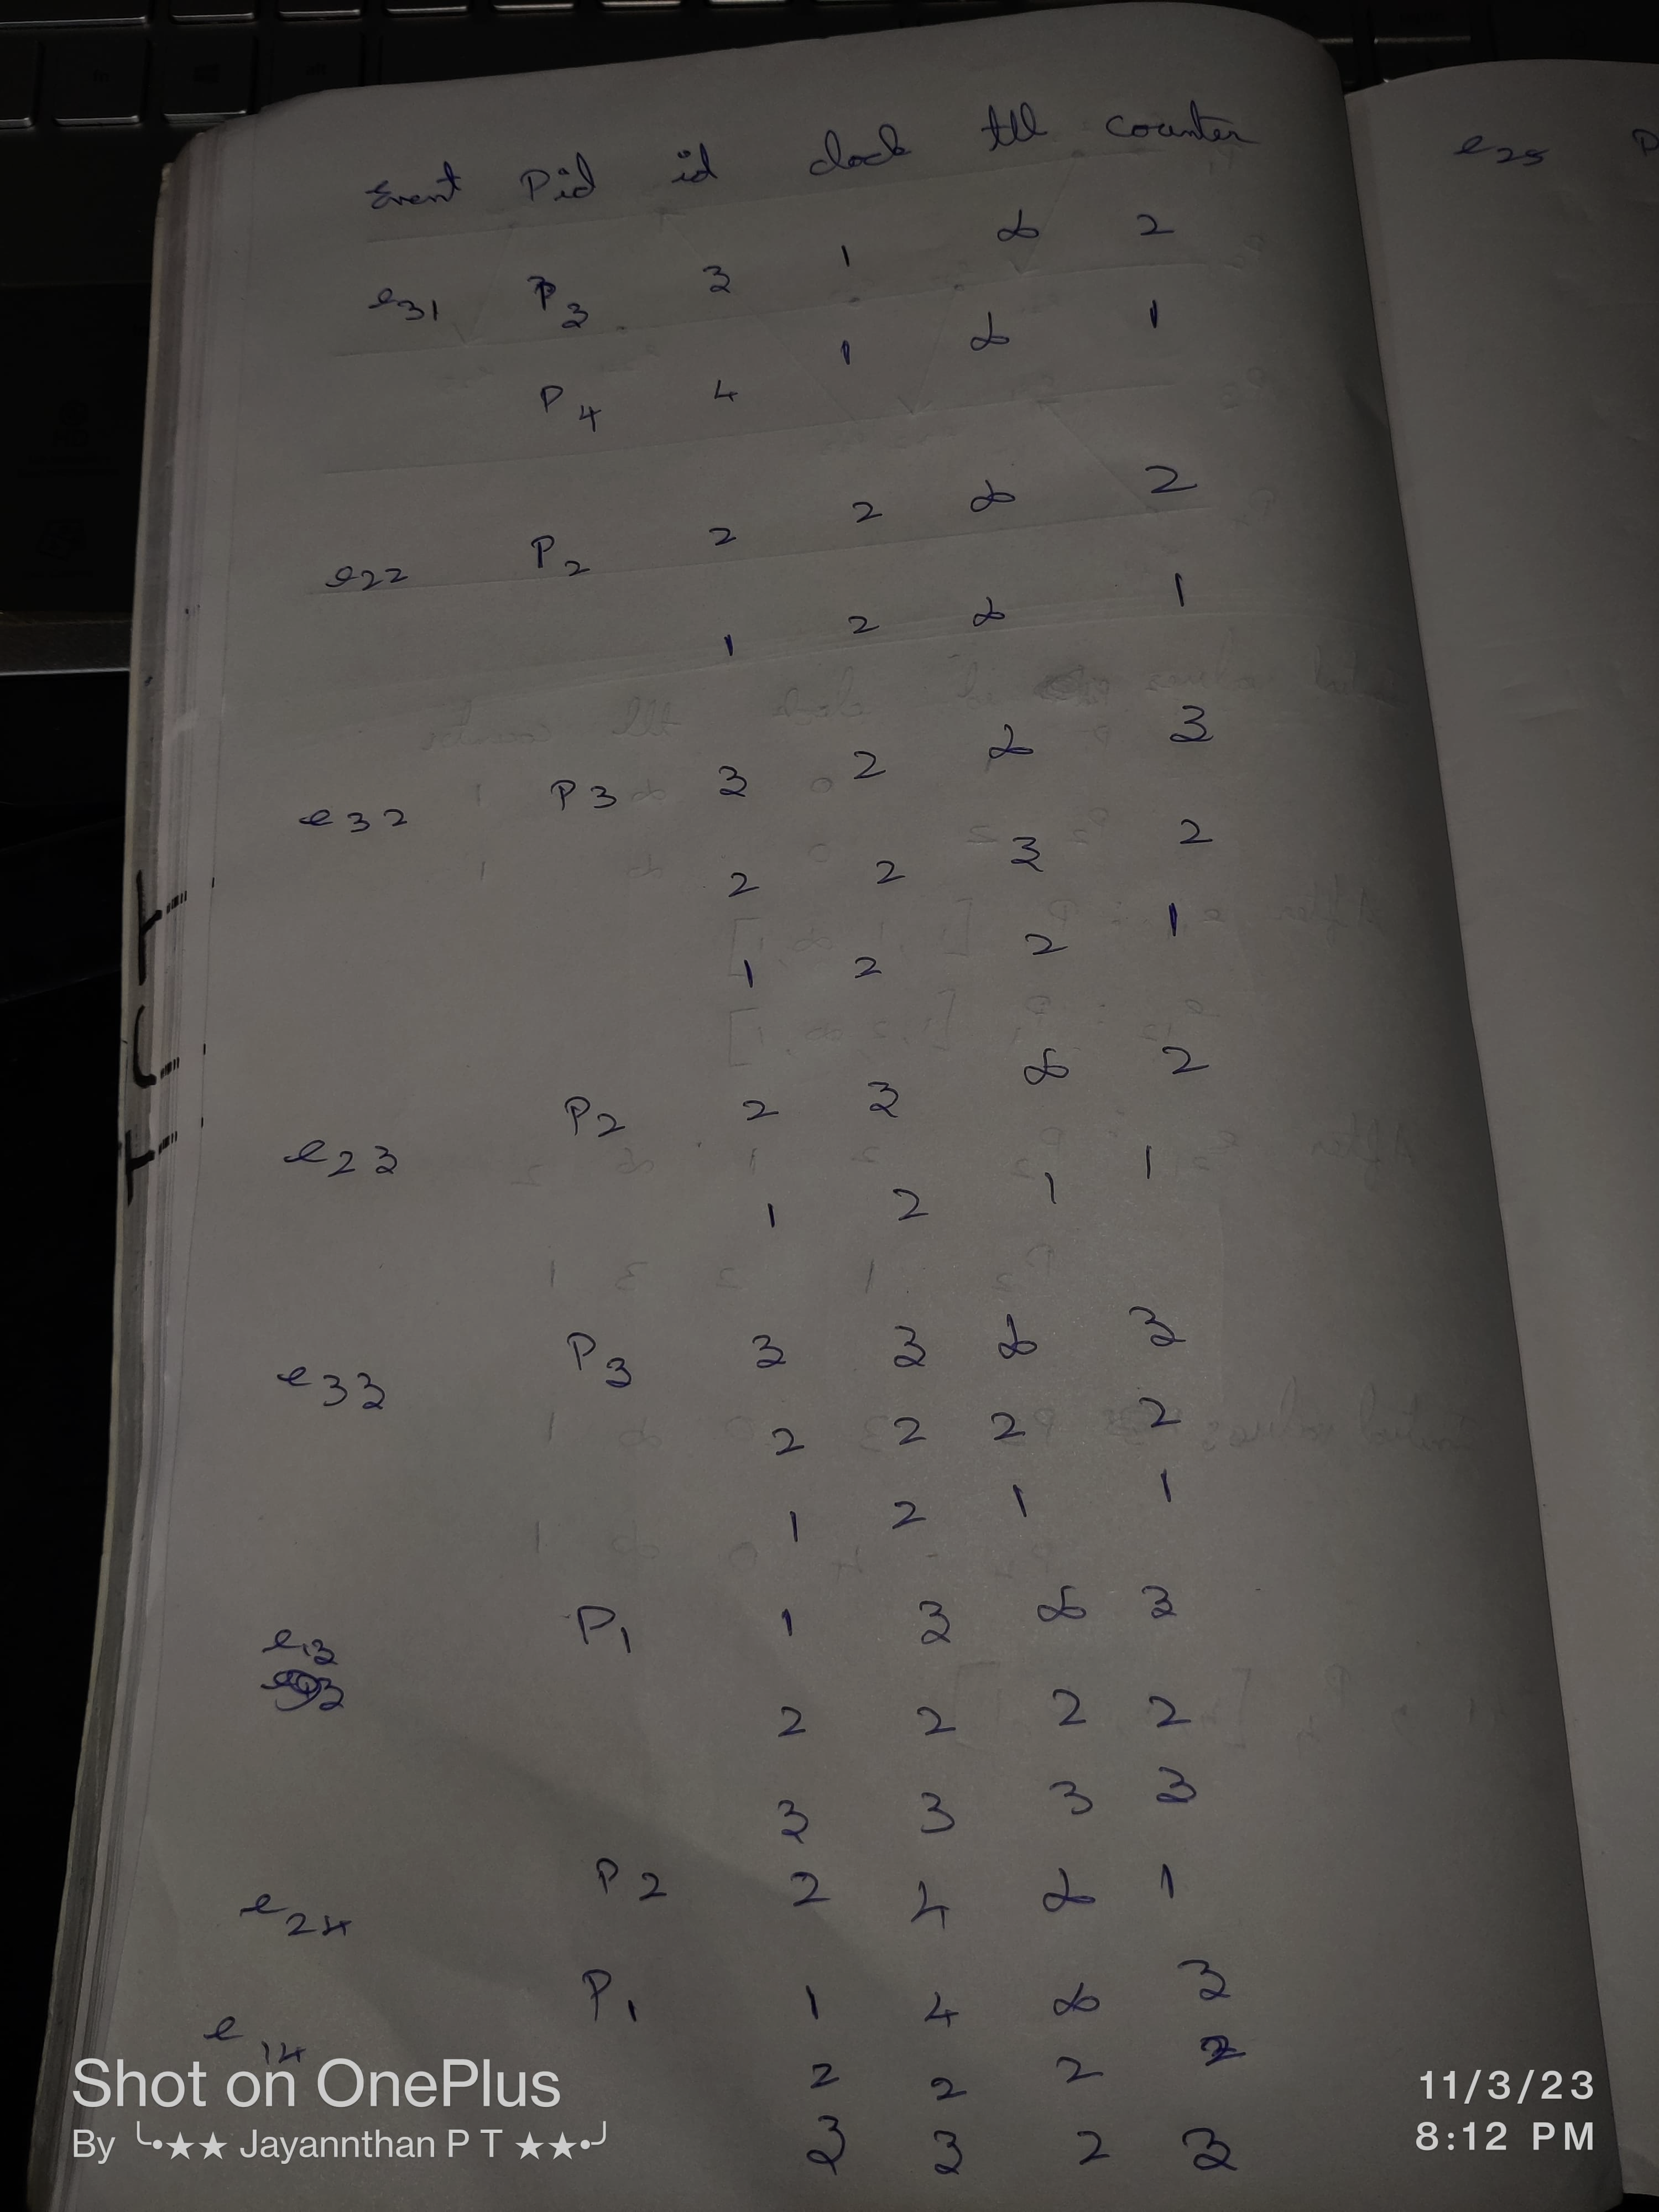 Event Pid id clock ttl counter
e31 P3 3 1 ∞ 2
P4 4 1 ∞ 1
e22 P2 2 2 ∞ 2
1 2 ∞ 1
e32 P3 3 2 ∞ 3
2 2 3 2
1 2 2 1
e23 P2 2 3 ∞ 2
1 2 1 1
e33 P3 3 3 ∞ 3
2 2 2 2
1 2 1 1
e13 P1 1 3 ∞ 3
2 2 2 2
3 3 3 3
e24 P2 2 4 ∞ 1
e14 P1 1 4 ∞ 3
2 2 2 2
3 3 2 3
e25 P
Shot on OnePlus
By ╰•★★ Jayannthan P T ★★•╯
11/3/23
8:12 PM